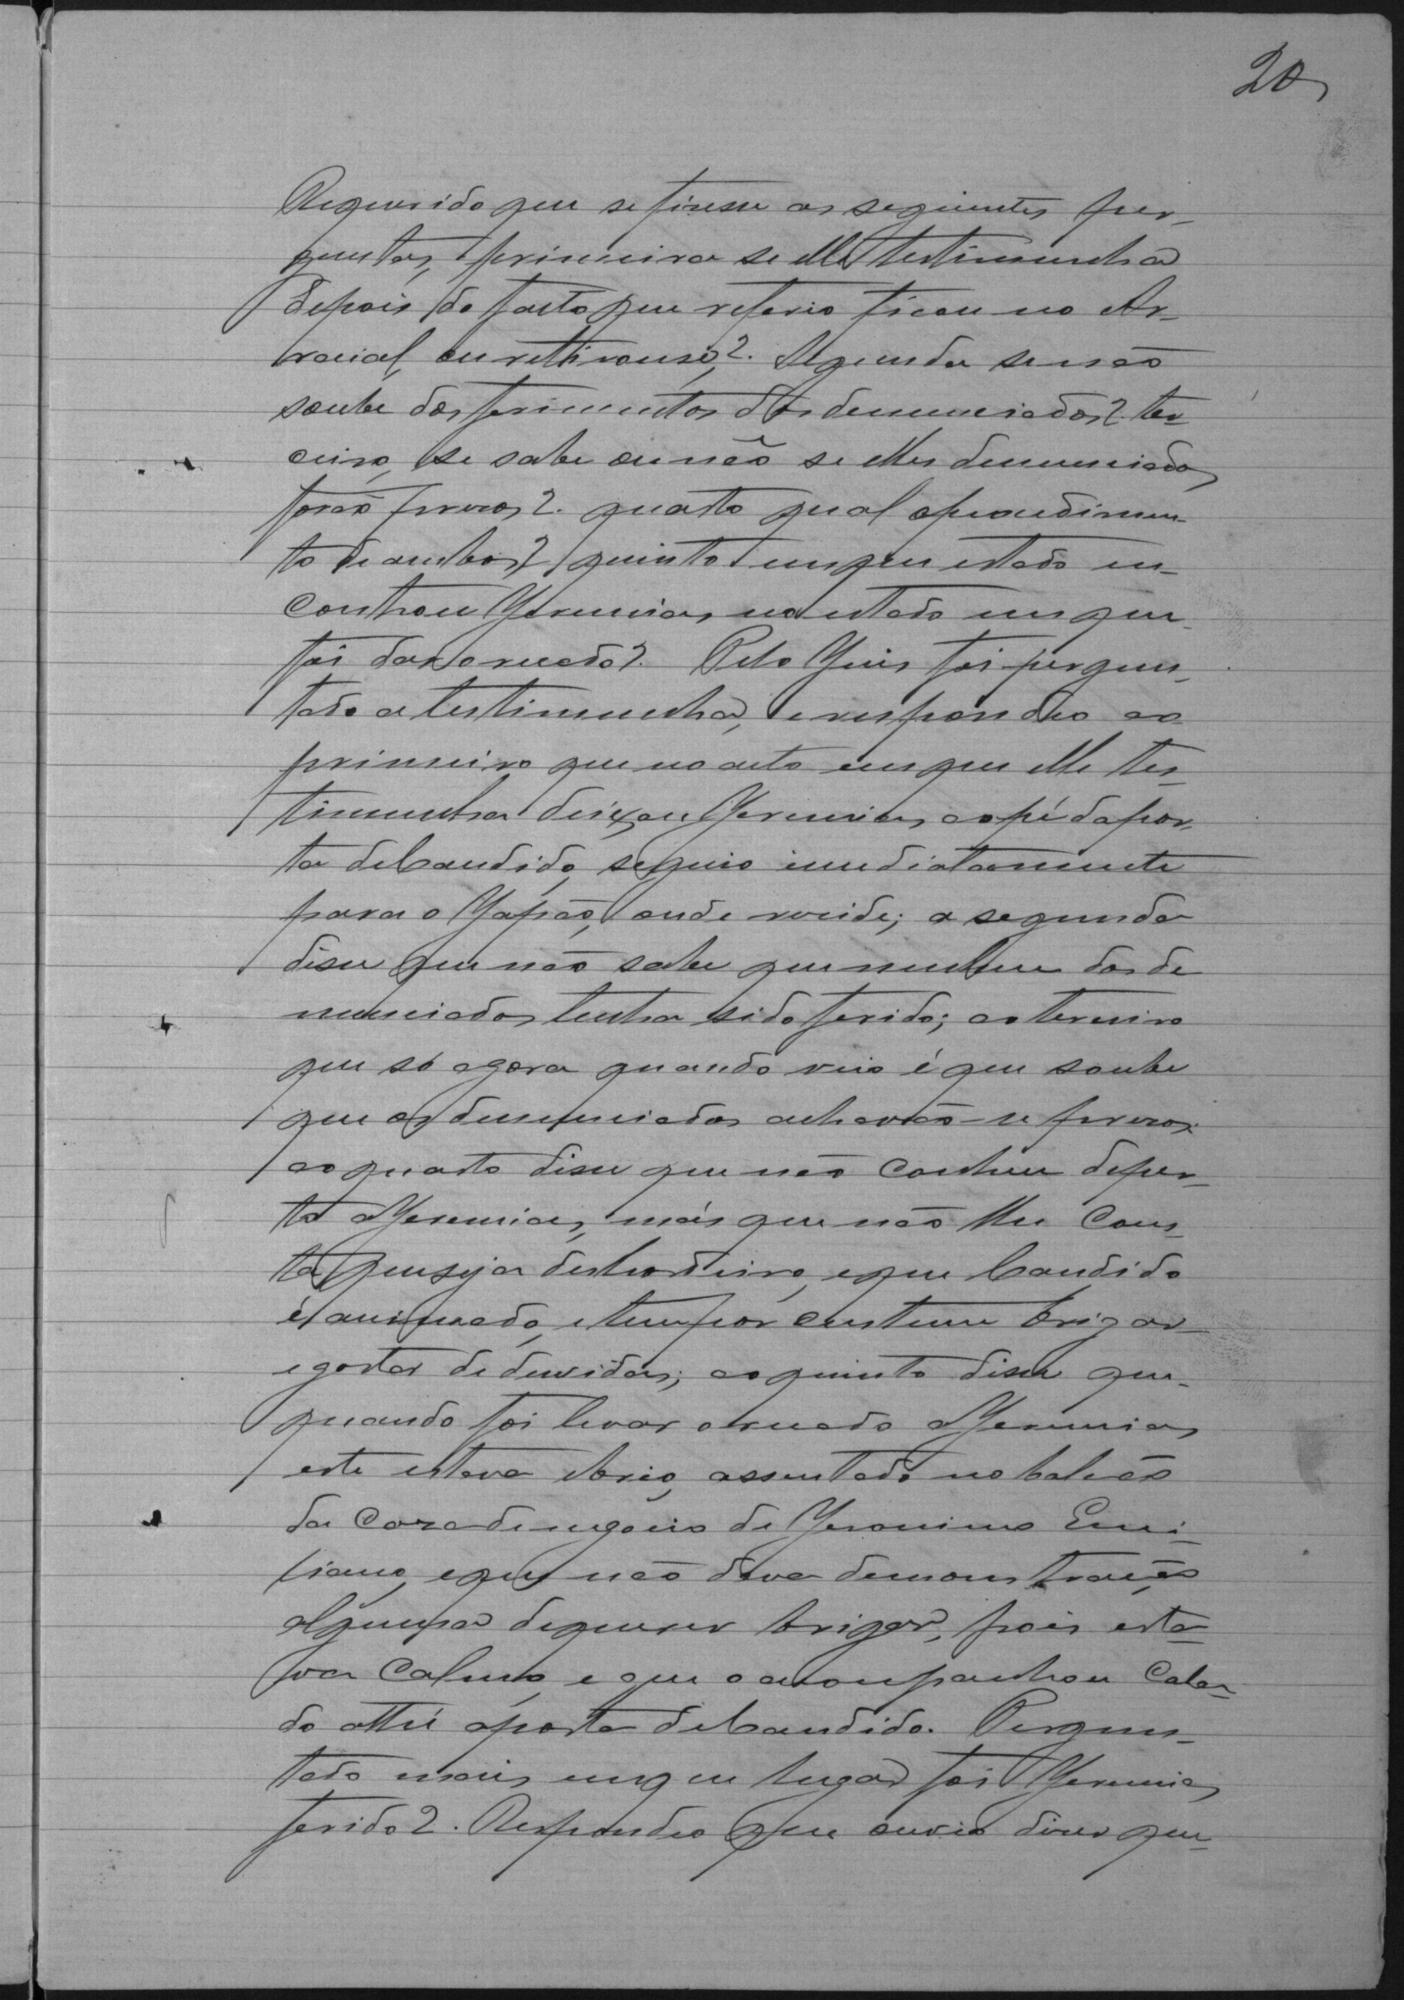 20
Requerido que se fizesse as seguintes per-
guntas, primeira se elle testimunha
depois do facto que referio ficou no Ar-
raial, ou retirouse?. Segunda se não
soube dos ferimentos dos denunciados? ter-
ceiro, se sabe ou não se elles denunciados
forão prezos?. quarto qual o
to de ambos? quinto em que estado en-
controu Yeremias no estado em que
foi dar o recado?. Pelo Yuis foi pergun-
tado a testimunha, e respondeo ao
primeiro que no acto em que elle tes-
timunha deixou Yeremias ao pé da por-
ta de Candido, seguio imediatamente
para o Yapão, onde rezide; a segunda
disse que não sabe que nenhum dos de
nunciados tenha sido ferido; ao terceiro
que só agora quando veio é que soube
que os denunciados achavão-se prezos;
ao quarto disse que não conhece de per-
to a Yeremias, más que não lhe cons-
ta que seja deshordeiro, e que Candido
é animado, e tem por custume brigar
e gosta de duvidas; ao quinto disse que
quando foi levar o recado a Yeremias
este estava ebrio, assentado no balcão
da caza de negocio de Yeronimo Emi-
liano, e que não dava demonstração
alguma de querer brigar, pois esta-
va calmo, e que o acompanhou cala-
do athé a porta de Candido. Pergun-
tado mais em que lugar foi Yeremias
ferido?. Respondeo que ouvio dizer que